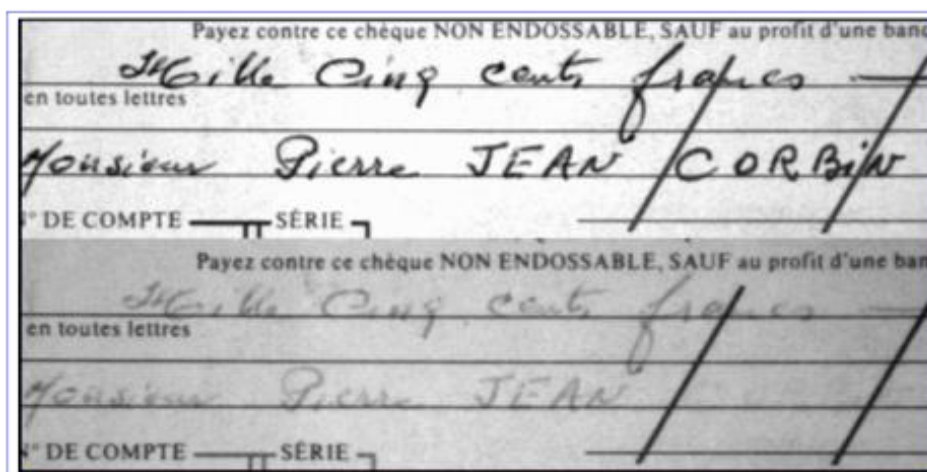 Payez contre ce chèque NON ENDOSSABLE, SAUF au profit d'une banq
Mille Cinq cents francs
en toutes lettres
Monsieur Pierre JEAN CORBIN
N° DE COMPTE SÉRIE
Payez contre ce chèque NON ENDOSSABLE, SAUF au profit d'une ban
Mille Cinq cents francs
en toutes lettres
Monsieur Pierre JEAN
N° DE COMPTE SÉRIE